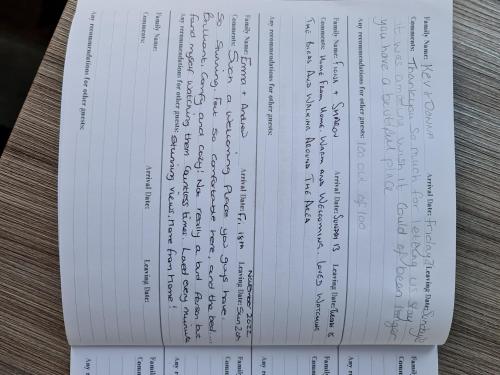 Family Name: Nev + Donna Arrival Date: Friday Leaving Date: Sunday
Comments: Thankyou so much for letting us stay
it was amazing wish it could of been longer
you have a beautiful place
Any recommendations for other guests: 100 out of 100
Family Name: Fiona + Sharon Arrival Date: Sunday 13 Leaving Date: 18
Comments: Home from home. Warm and welcoming. Loved watching
the birds and walking around the area
Any recommendations for other guests:
Family Name: Emma + Andrew Arrival Date: Fri 18th November 2022 Leaving Date: Sun 20th
Comments: Such a welcoming place you guys have.
So stunning, felt so comfortable here, and the bed...
Brilliant, comfy and cozy! Not really a bird person but
found myself watching them countless times. Loved every minute
Any recommendations for other guests: Stunning views, Home from Home!
Family Name: Arrival Date: Leaving Date:
Comments:
Any recommendations for other guests:
Family
Comments
Any
Family
Comments
Any
Family
Comments
Any
Family
Comments
Any